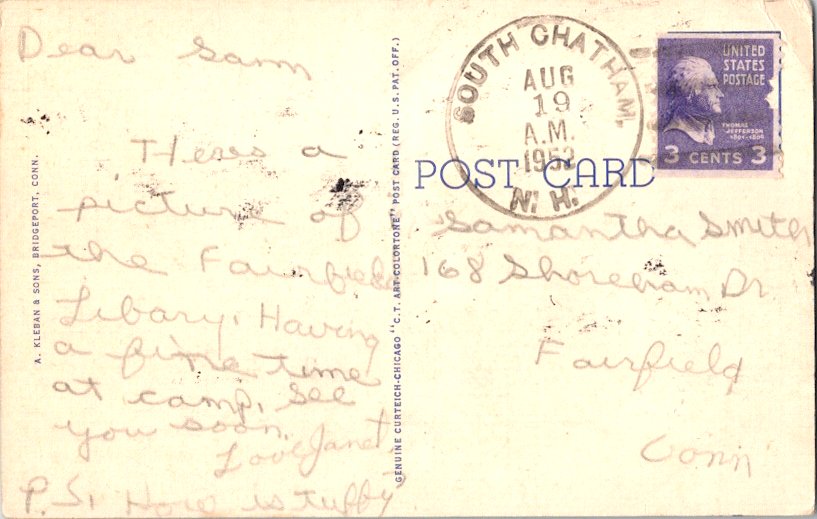 Dear Samm
Heres a
picture of
the Fairfield
Libary. Having
a fine time
at camp. See
you soon.
Love Janet
P.S. How is tuffy
A. KLEBAN & SONS, BRIDGEPORT, CONN.
GENUINE CURTEICH-CHICAGO "C.T. ART-COLORTONE" POST CARD (REG. U.S. PAT. OFF.)
SOUTH CHATHAM,
AUG
19
A.M.
1952
N. H.
UNITED
STATES
POSTAGE
THOMAS
JEFFERSON
1801-1809
3 CENTS 3
POST CARD
Samantha Smith
168 Shoreham Dr
Fairfield
Conn